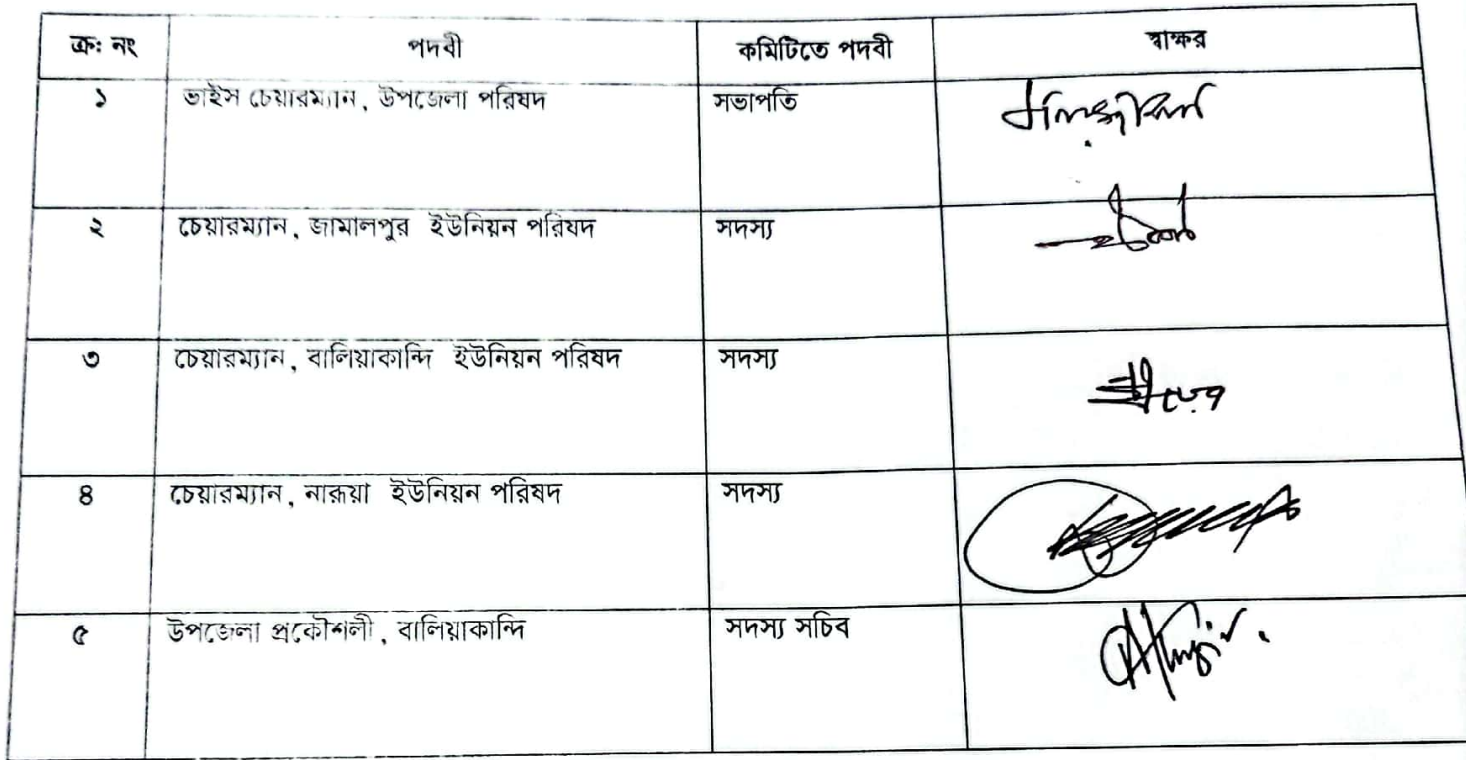 ক্রঃ নং পদবী কমিটিতে পদবী স্বাক্ষর
১ ভাইস চেয়ারম্যান, উপজেলা পরিষদ সভাপতি
২ চেয়ারম্যান, জামালপুর ইউনিয়ন পরিষদ সদস্য
৩ চেয়ারম্যান, বালিয়াকান্দি ইউনিয়ন পরিষদ সদস্য
৪ চেয়ারম্যান, নারুয়া ইউনিয়ন পরিষদ সদস্য
৫ উপজেলা প্রকৌশলী, বালিয়াকান্দি সদস্য সচিব